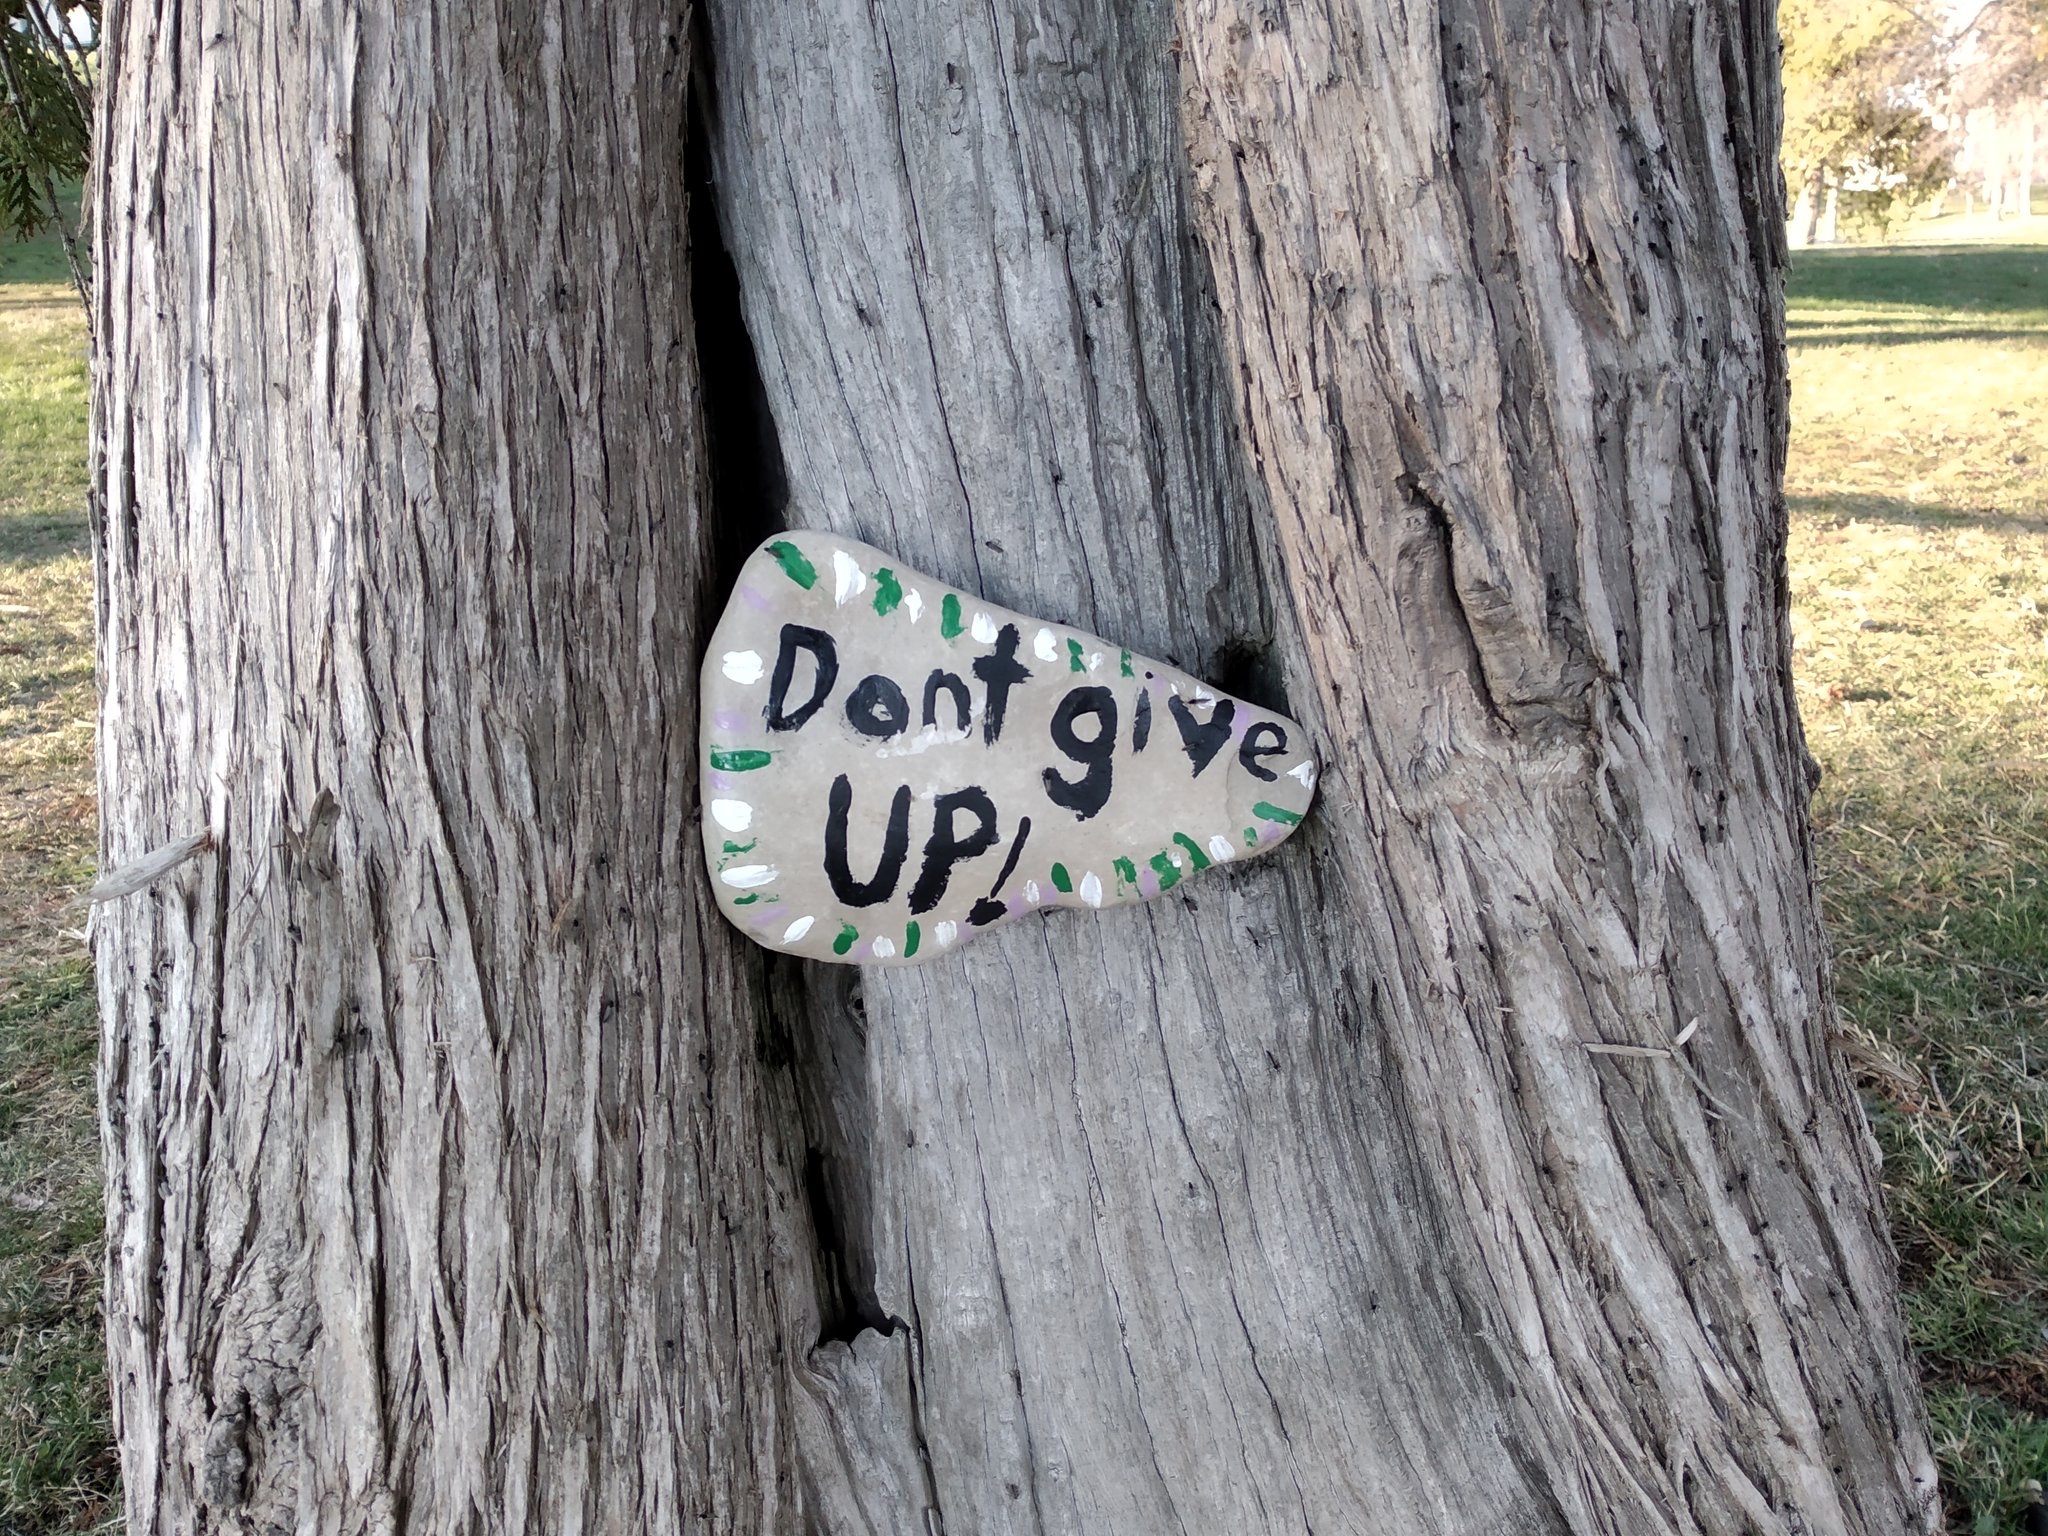 Dont give
UP!